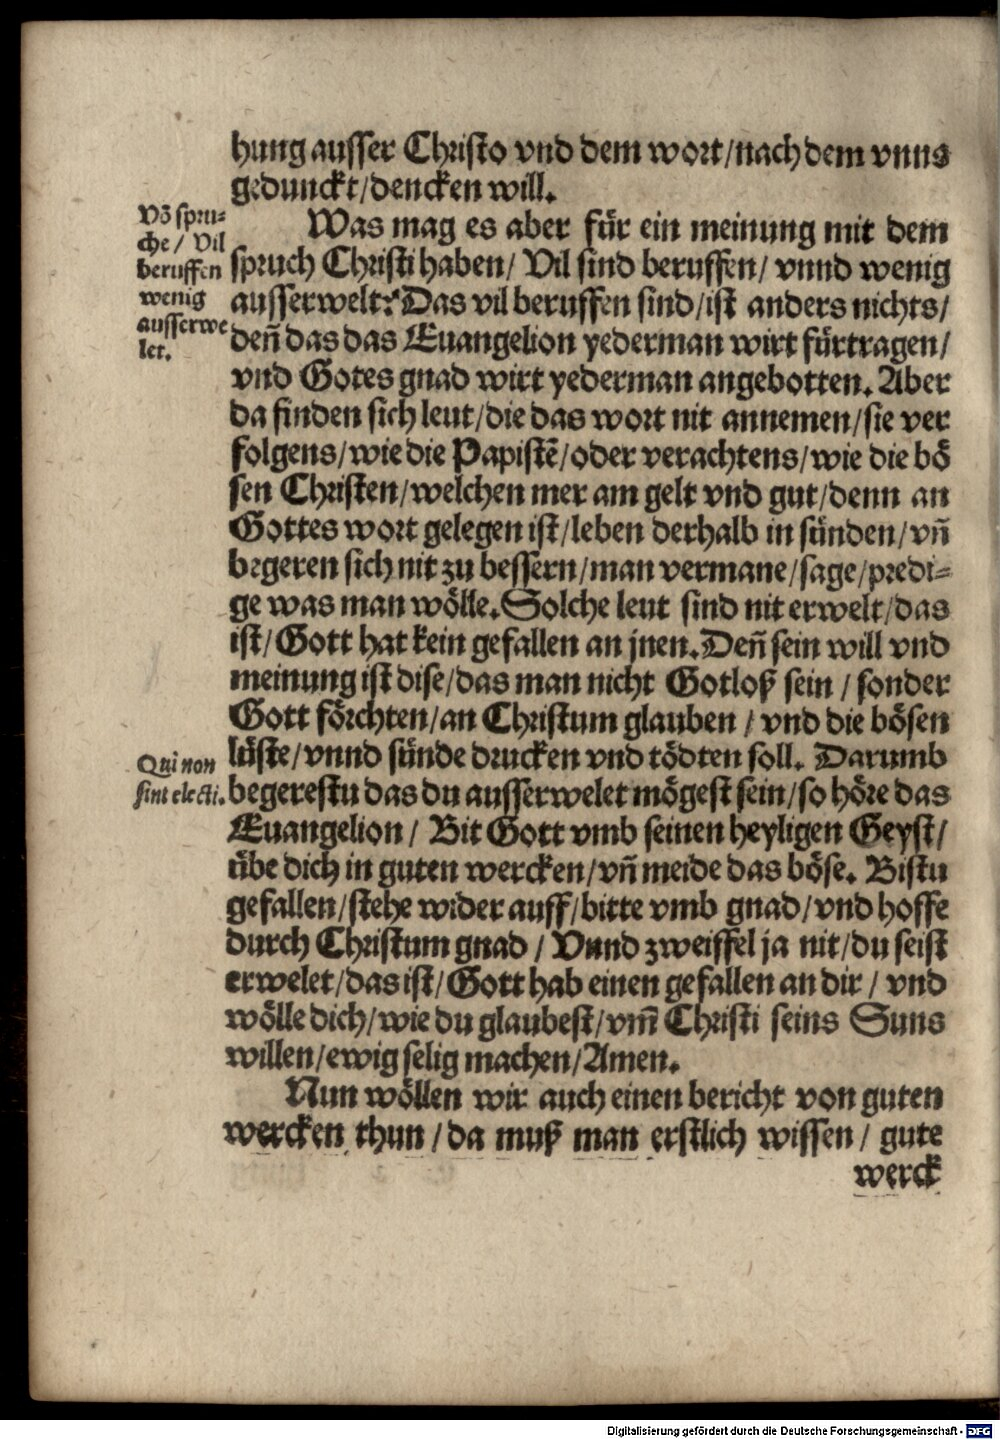 hung ausser Christo vnd dem wort/nach dem vnns
gedunckt/dencken will.
Vō spru-
che / Vil
beruffen
wenig
ausserwe
let.
Was mag es aber für ein meinung mit dem
spruch Christi haben/ Vil sind beruffen/ vnnd wenig
ausserwelt? Das vil beruffen sind/ist anders nichts/
deñ das das Euangelion yederman wirt fürtragen/
vnd Gotes gnad wirt yederman angebotten. Aber
da finden sich leut/die das wort nit annemen/sie ver
folgens/wie die Papistē/oder verachtens/wie die bö
sen Christen/welchen mer am gelt vnd gut/denn an
Gottes wort gelegen ist/leben derhalb in sünden/vñ
begeren sich nit zu bessern/man vermane/sage/predi-
ge was man wölle. Solche leut sind nit erwelt/das
ist/Gott hat kein gefallen an jnen. Deñ sein will vnd
meinung ist dise/das man nicht Gotloß sein / sonder
Gott förchten/an Christum glauben / vnd die bösen
lüste/vnnd sünde drucken vnd tödten soll. Darumb
Qui non
sint electi.
begerestu das du ausserwelet mögest sein/so höre das
Euangelion / Bit Gott vmb seinen heyligen Geyst/
übe dich in guten wercken/vñ meide das böse. Bistu
gefallen/stehe wider auff/bitte vmb gnad/vnd hoffe
durch Christum gnad / Vnnd zweiffel ja nit/du seist
erwelet/das ist/Gott hab einen gefallen an dir / vnd
wölle dich/wie du glaubest/vm̄ Christi seins Suns
willen/ewig selig machen/Amen.
Nun wöllen wir auch einen bericht von guten
wercken thun/da muß man erstlich wissen / gute
werck
Digitalisierung gefördert durch die Deutsche Forschungsgemeinschaft - DFG